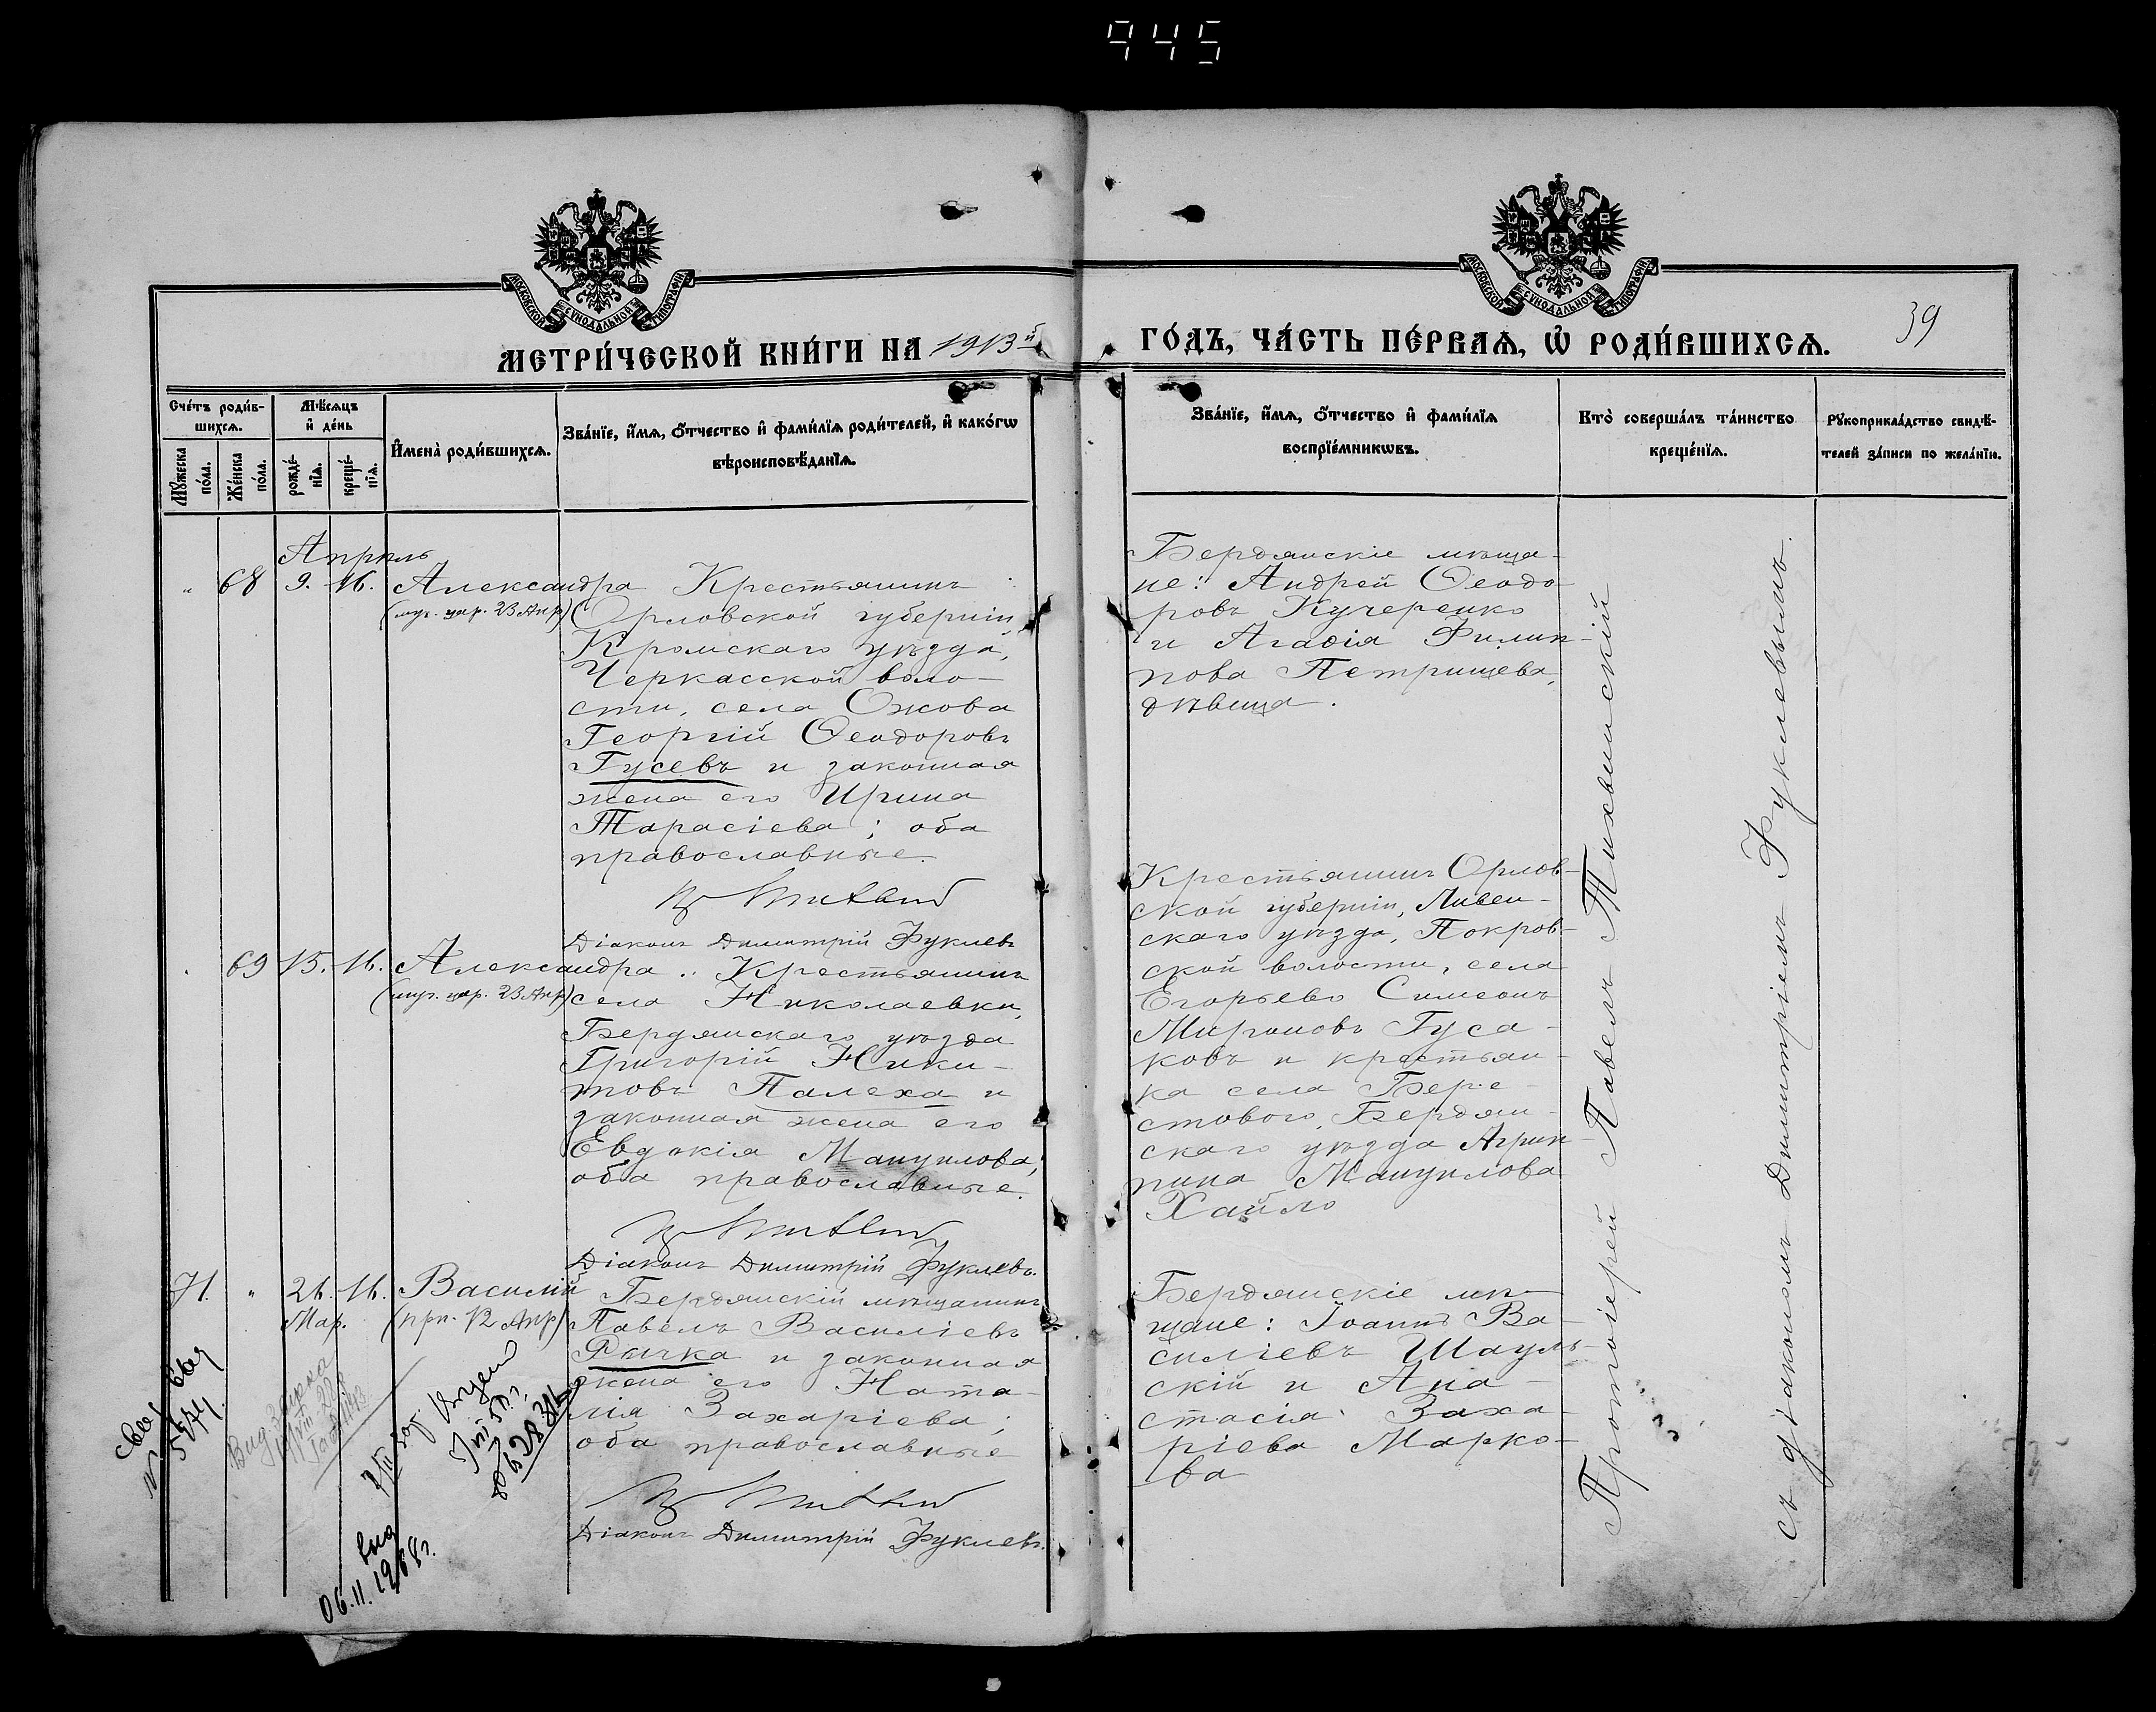 945
МОСКОВСКОЙ СѴНОДАЛЬНОЙ ТИПОГРАФІИ
МОСКОВСКОЙ СѴНОДАЛЬНОЙ ТИПОГРАФІИ
МЕТРИ́ЧЕСКОЙ КНИ́ГИ НА 1913й
ГО́ДЪ, ЧА́СТЬ ПЕ́РВАѦ, Ѡ҆ РОДИ́ВШИХСѦ.
39
Сче́тъ роди́в-
шихсѧ.
Мꙋ́жеска
по́ла.
Же́нска
по́ла.
Мѣ́сѧцъ
и҆ де́нь
рожде́-
нїѧ.
креще́-
нїѧ.
И҆мена̀ роди́вшихсѧ.
Зва́нїе, и҆́мѧ, ѻ҆́тчество и҆ фами́лїѧ роди́телей, и҆ како́гѡ
вѣроисповѣ́данїѧ.
Зва́нїе, и҆́мѧ, ѻ҆́тчество и҆ фами́лїѧ
воспрїе́мникѡвъ.
Кто̀ соверша́лъ та́инство
креще́нїѧ.
Рꙋкоприкла́дство свидѣ́-
телей за́писи по жела́нїю.
Апрѣль
" 68 9. 16. Александра
(муч. цар. 23 Апр)
Крестьянинъ
Орловской губерніи,
Кромскаго уѣзда,
Черкасской воло-
сти, села Ожова
Георгій Ѳеодоровъ
Гусевъ и законная
жена его Ирина
Тарасіева; оба
православные.
Діаконъ Димитрій Фуклевъ
Бердянскіе мѣща-
не: Андрей Ѳеодо-
ровъ Кучеренко
и Агаѳія Филип-
пова Петрищева,
дѣвица.
69 15. 16. Александра
(муч. цар. 23 Апр)
Крестьянинъ
села Николаевки,
Бердянскаго уѣзда
Григорій Ники-
товъ Палеха и
законная жена его
Евдокія Мануилова;
оба православные.
Діаконъ Димитрій Фуклевъ.
Крестьянинъ Орлов-
ской губерніи, Ливен-
скаго уѣзда, Покров-
ской волости, села
Егорьево Симеонъ
Мироновъ Гуса-
ковъ и крестьян-
ка села Бере-
стового, Бердян-
скаго уѣзда Агрип-
пина Мануилова
Хайло
71. " 26. 16. Василій
Мар. (прп. 12 Апр)
Бердянскій мѣщанинъ
Павелъ Василіевъ
Рычка и законная
жена его Ната-
лія Захаріева;
оба православные
Діаконъ Димитрій Фуклевъ.
Бердянскіе мѣ-
щане: Іоаннъ Ва-
силіевъ Шауль-
скій и Ана-
стасія Заха-
ріева Марко-
ва
Протоіерей Павелъ Тихвинскій
съ діакономъ Димитріемъ Фуклевымъ.
5674.
06.11.1968г.